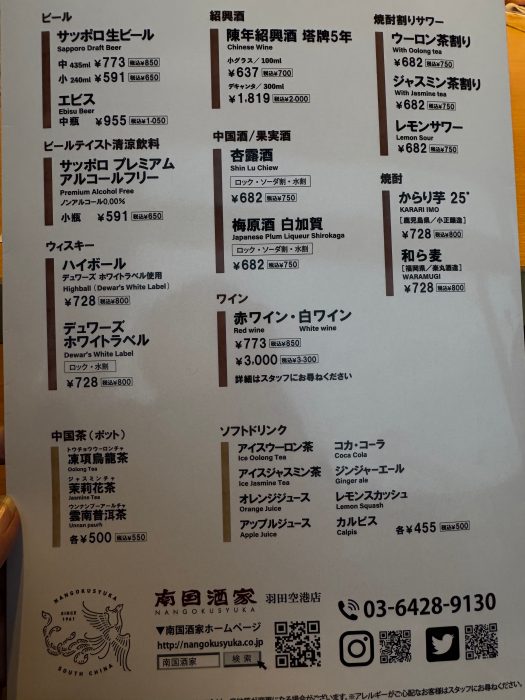 ビール
サッポロ生ビール
Sapporo Draft Beer
中 435ml ¥773 税込¥850
小 240ml ¥591 税込¥650
エビス
Ebisu Beer
中瓶 ¥955 税込¥1,050
ビールテイスト清涼飲料
サッポロ プレミアム
アルコールフリー
Premium Alcohol Free
ノンアルコール0.00%
小瓶 ¥591 税込¥650
ウィスキー
ハイボール
デュワーズ ホワイトラベル使用
Highball (Dewar's White Label)
¥728 税込¥800
デュワーズ
ホワイトラベル
Dewar's White Label
ロック・水割
¥728 税込¥800
紹興酒
陳年紹興酒 塔牌5年
Chinese Wine
小グラス/100ml
¥637 税込¥700
デキャンタ/300ml
¥1,819 税込¥2,000
中国酒/果実酒
杏露酒
Shin Lu Chiew
ロック・ソーダ割・水割
¥682 税込¥750
梅原酒 白加賀
Japanese Plum Liqueur Shirokaga
ロック・ソーダ割・水割
¥682 税込¥750
ワイン
赤ワイン・白ワイン
Red wine White wine
¥773 税込¥850
¥3,000 税込¥3,300
詳細はスタッフにお尋ねください
焼酎割りサワー
ウーロン茶割り
With Oolong tea
¥682 税込¥750
ジャスミン茶割り
With Jasmine tea
¥682 税込¥750
レモンサワー
Lemon Sour
¥682 税込¥750
焼酎
からり芋 25°
KARARI IMO
[鹿児島県/小正醸造]
¥728 税込¥800
和ら麦
[福岡県/楽丸酒造]
WARAMUGI
¥728 税込¥800
中国茶(ポット)
トウチョウウーロンチャ
凍項烏龍茶
Oolong Tea
ジャスミンチャ
茉莉花茶
Jasmine Tea
ウンナンプーアールチャ
雲南普洱茶
Unnan paurh
各¥500 税込¥550
ソフトドリンク
アイスウーロン茶
Ice Oolong Tea
アイスジャスミン茶
Ice Jasmine Tea
オレンジジュース
Orange Juice
アップルジュース
Apple Juice
コカ・コーラ
Coca Cola
ジンジャーエール
Ginger ale
レモンスカッシュ
Lemon Squash
カルピス
Calpis
各¥455 税込¥500
NANGOKUSYUKA
SINCE
1961
SOUTH CHINA
南国酒家 羽田空港店
NANGOKUSYUKA
▼南国酒家ホームページ
http://nangokusyuka.co.jp
南国酒家 検索
03-6428-9130
が変更になる場合がございます。※アレルギーがご心配なお客様はスタッフにお尋ね